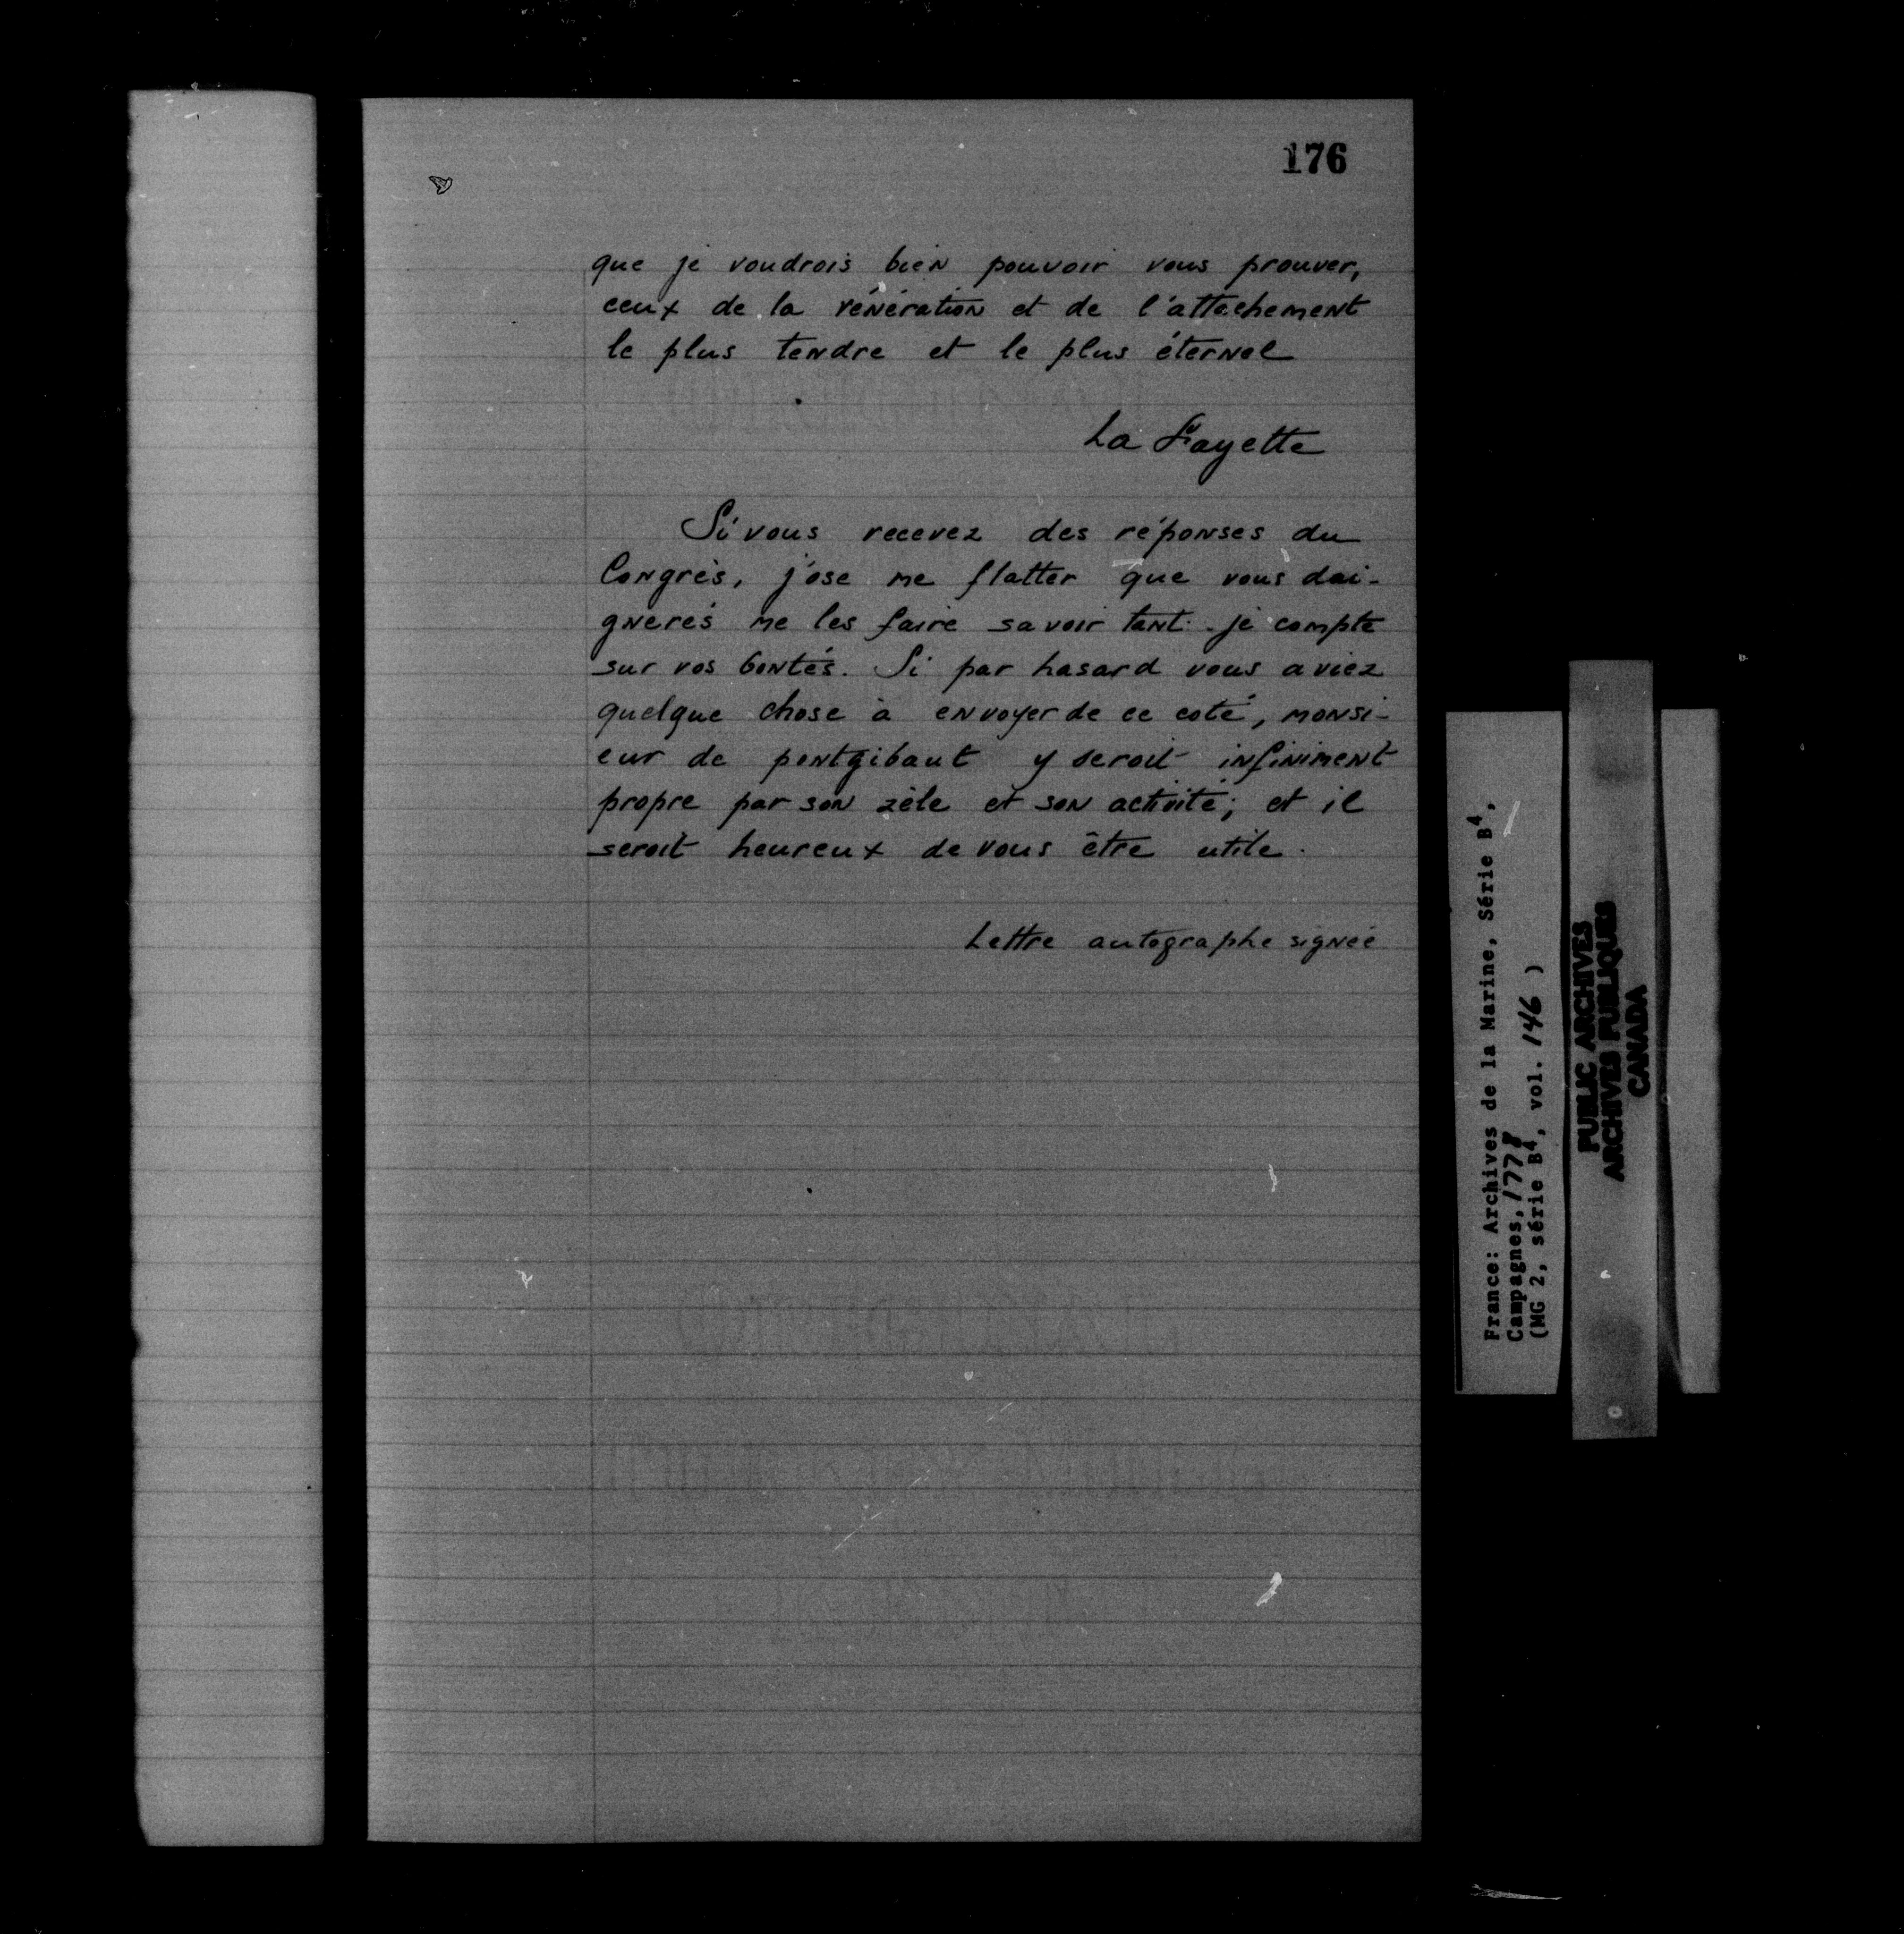 176
que je voudrois bien pouvoir vous prouver,
ceux de la vénération et de l'attachement
le plus tendre et le plus éternel
La Fayette
Si vous recevez des réponses du
Congrès, j'ose me flatter que vous dai-
gnerés me les faire savoir tant je compte
sur vos bontés. Si par hasard vous aviez
quelque chose à envoyer de ce coté, monsi-
eur de pontgibaut y seroit infiniment
propre par son zèle et son activité; et il
seroit heureux de vous être utile.
Lettre autographe signée
France: Archives de la Marine, Série B4,
Campagnes, 1778
(MG 2, série B4, vol. 146 )
PUBLIC ARCHIVES
ARCHIVES PUBLIQUES
CANADA